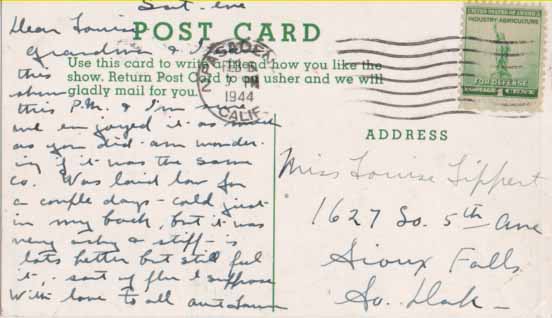 Sat. eve
POST CARD
Dear Louise
Grandma & I saw
this
show
this P.M. & I'm sure
we enjoyed it as much
as you did. am wonder-
ing if it was the same
co. Was laid low for
a couple days - cold just
in my back, but it was
very achy & stiff - is
lots better but still feel
it, - sort of flu I suppose
With love to all aunt
Use this card to write a friend how you like the
show. Return Post Card to an usher and we will
gladly mail for you.
PASADENA
FEB
PM
1944
CALIF
UNITED STATES OF AMERICA
INDUSTRY-AGRICULTURE
FOR DEFENSE
1 CENT
ADDRESS
Miss Louise Lippert
1627 So. 5th Ave
Sioux Falls
So. Dak -